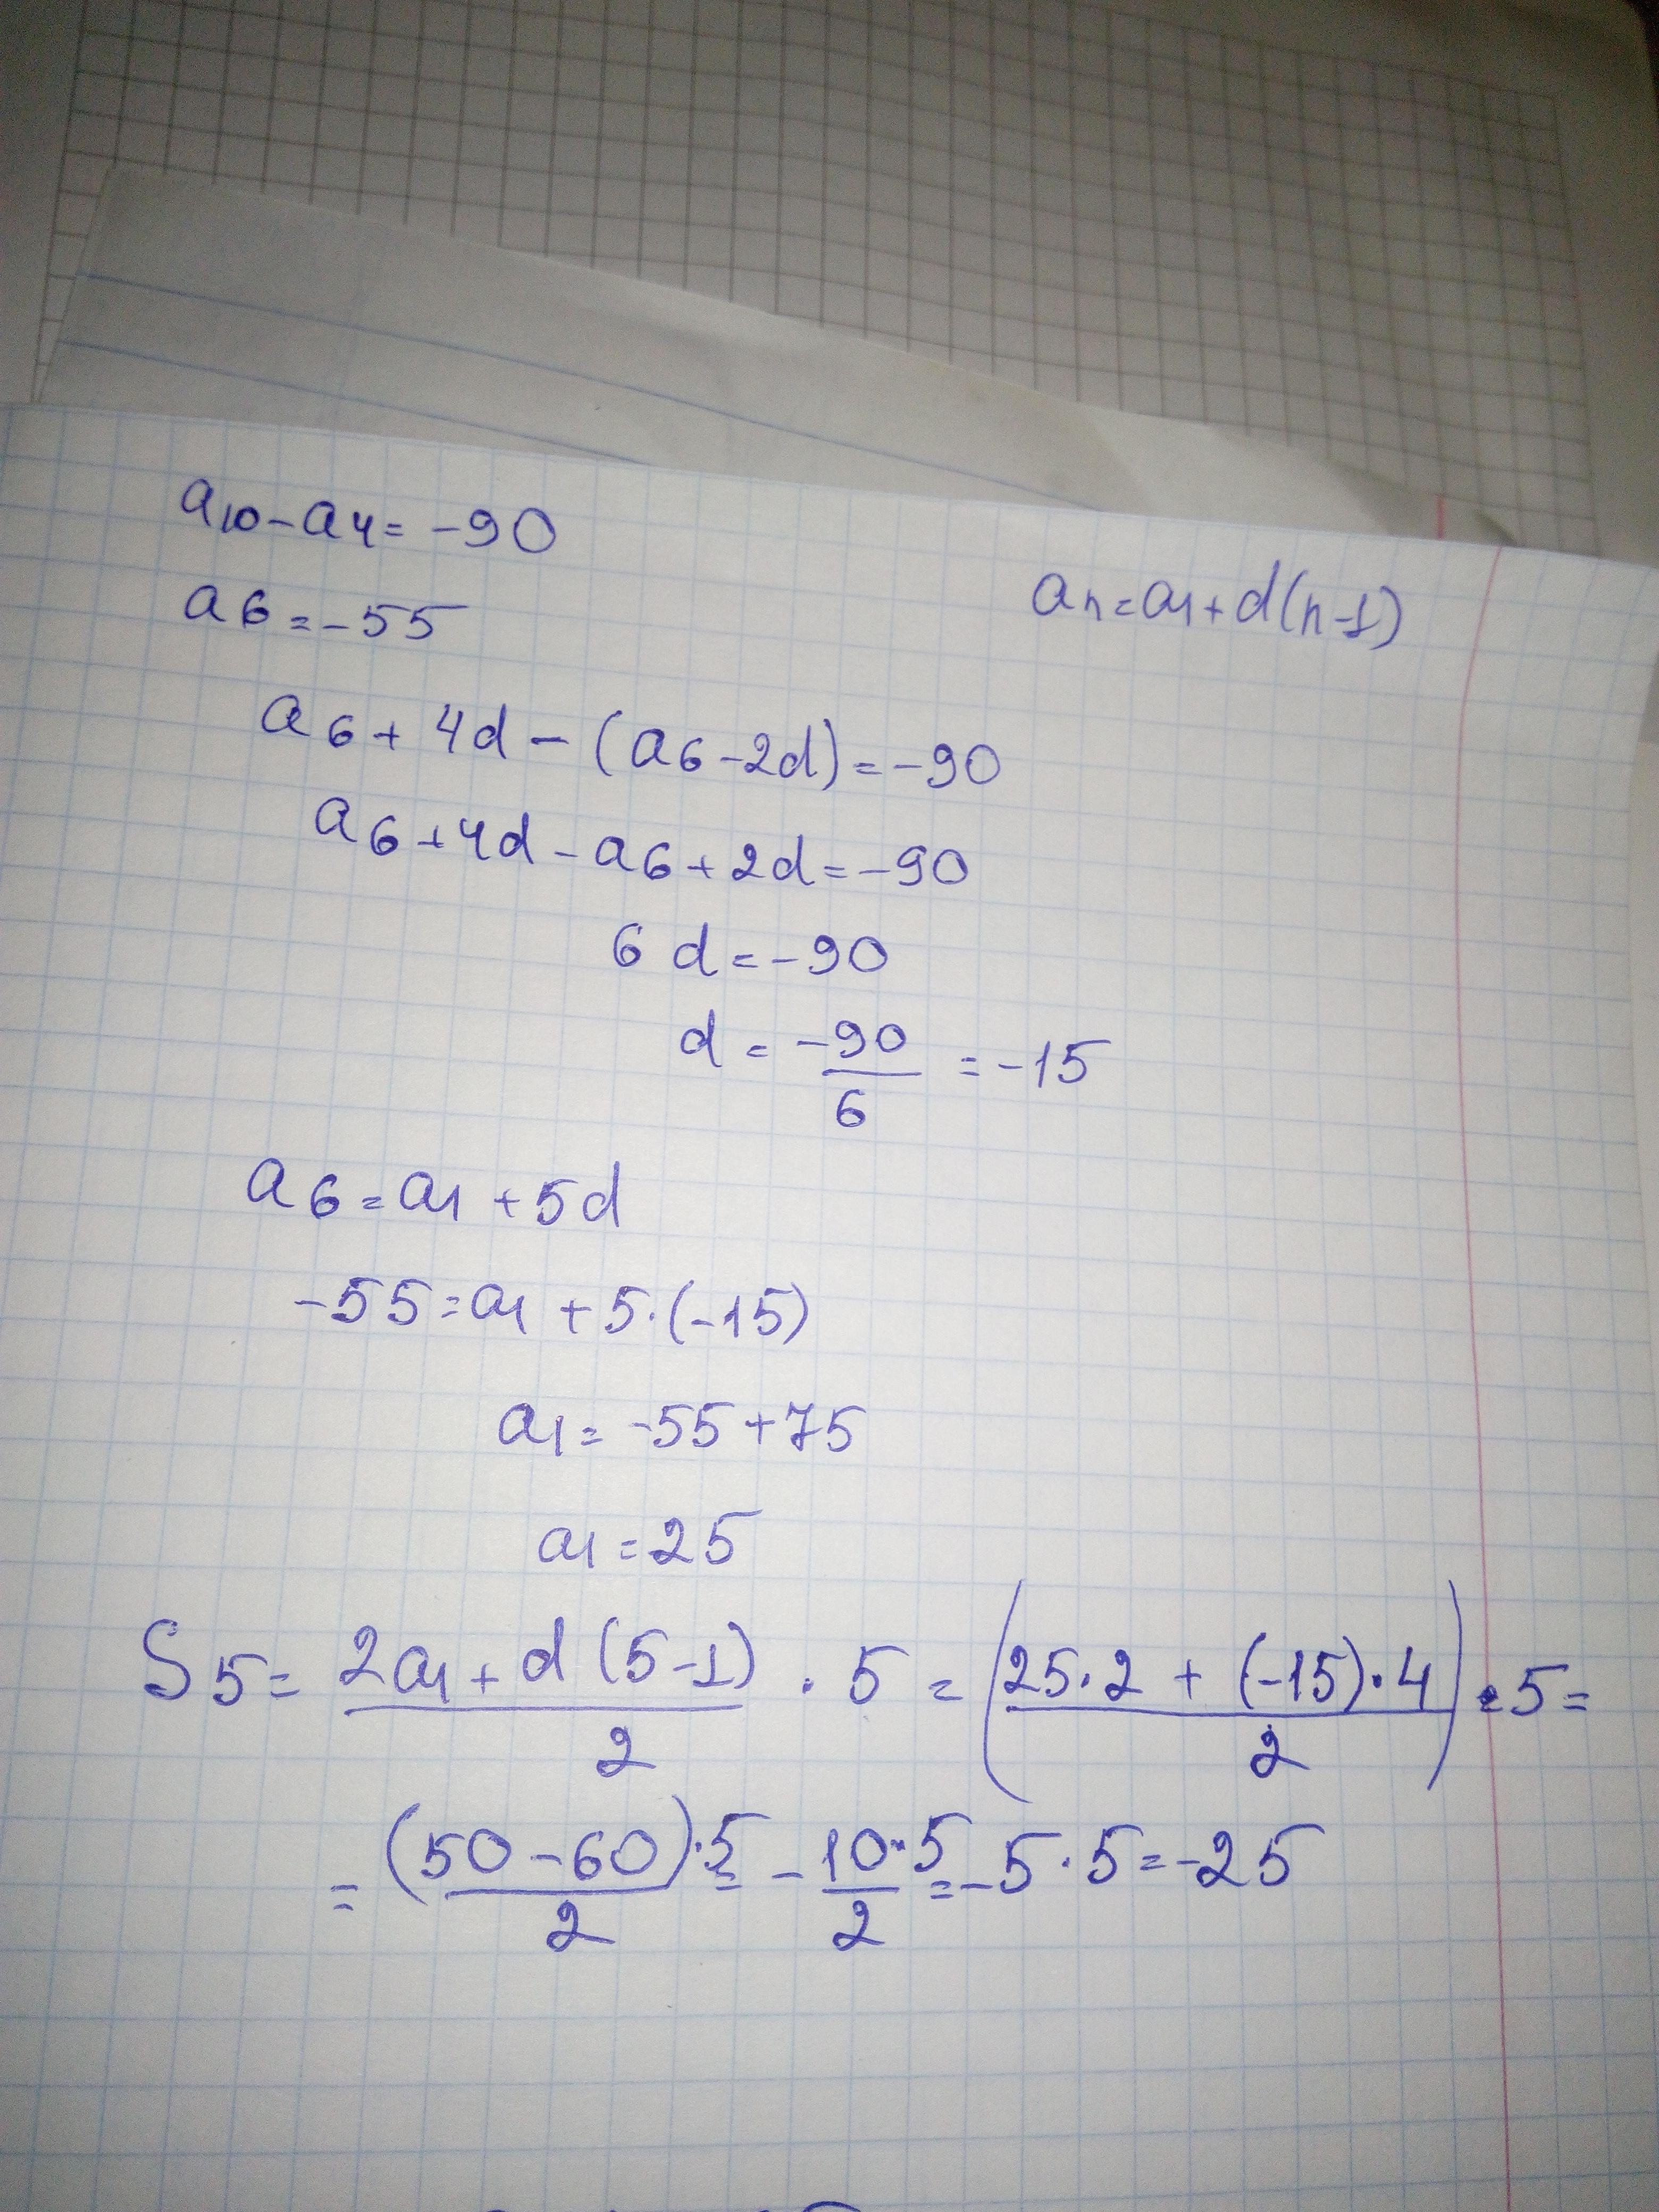 a₁₀-a₄=-90
a₆=-55
aₙ=a₁+d(n-1)
a₆+4d-(a₆-2d)=-90
a₆+4d-a₆+2d=-90
6d=-90
d=-90/6=-15
a₆=a₁+5d
-55=a₁+5·(-15)
a₁=-55+75
a₁=25
S₅=(2a₁+d(5-1))/2·5=((25·2+(-15)·4)/2)·5=
=(50-60)·5/2=-10·5/2=-5·5=-25